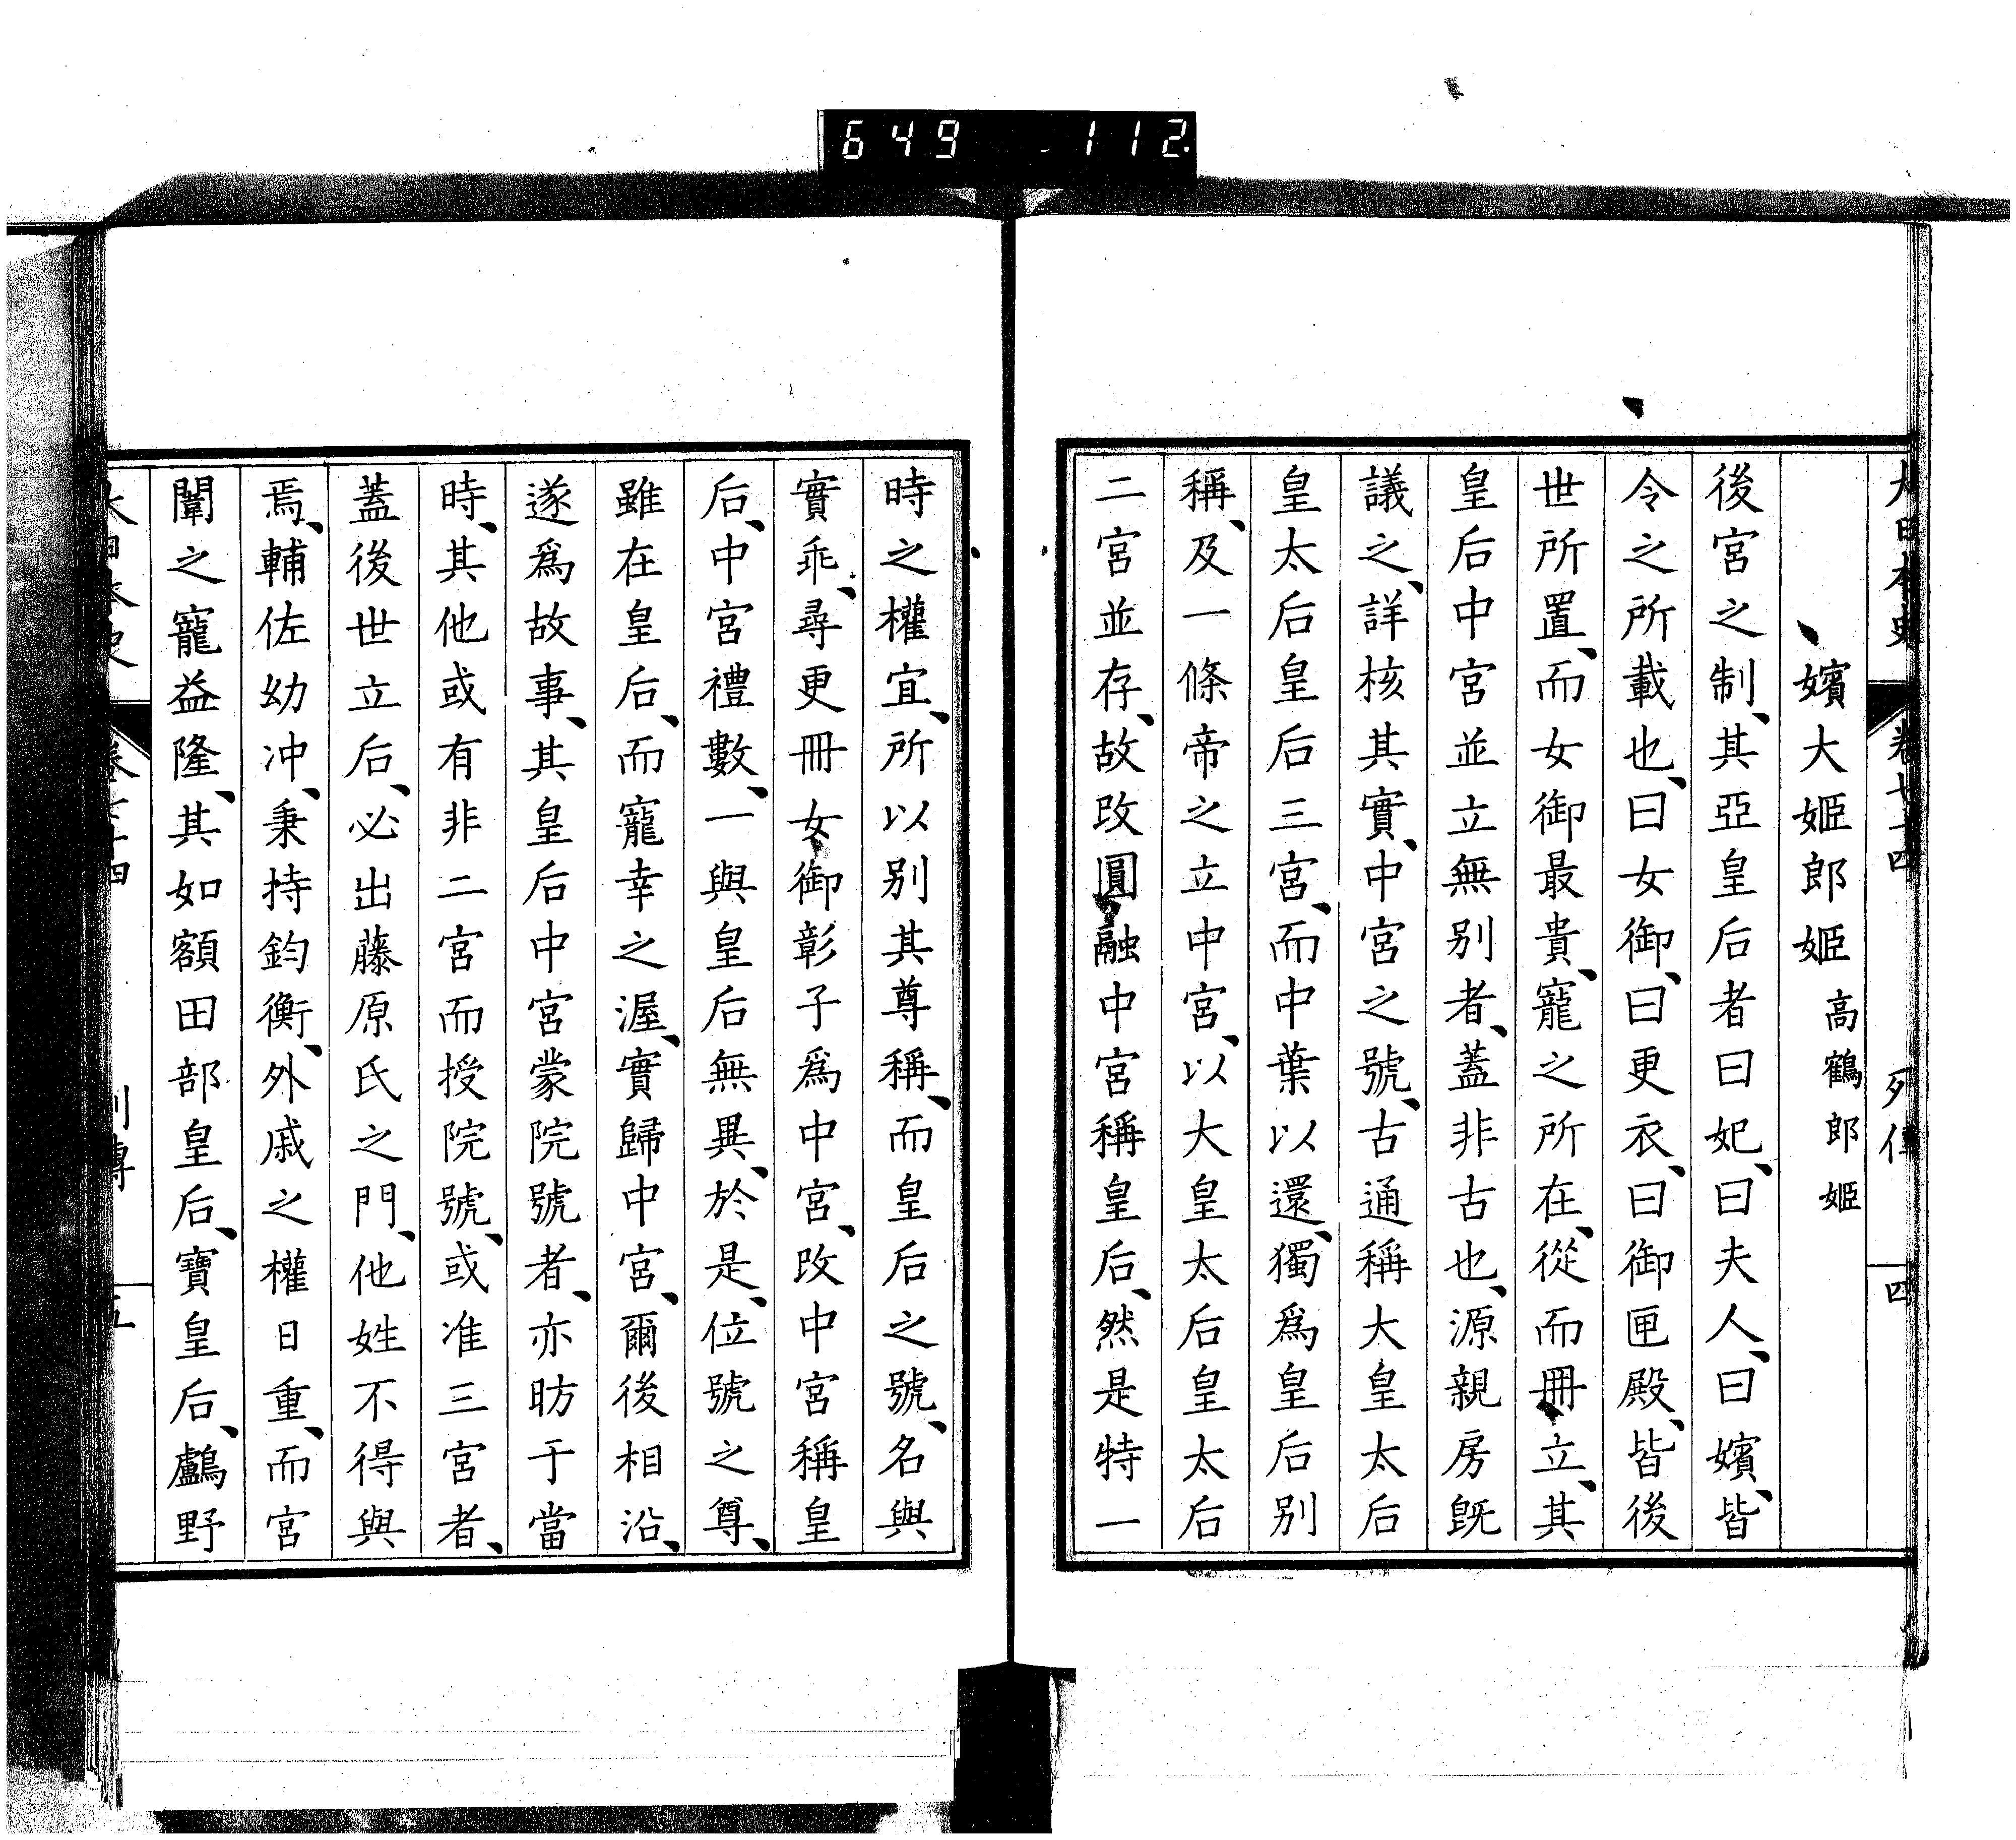 649 112
大日本史 卷七十四 列傳 四
嬪大姬郎姬 高鶴郎姬
後宮之制、其亞皇后者曰妃、曰夫人、曰嬪、皆
令之所載也、曰女御、曰更衣、曰御匣殿、皆後
世所置、而女御最貴、寵之所在、從而冊立、其
皇后中宮並立無別者、蓋非古也、源親房既
議之、詳核其實、中宮之號、古通稱大皇太后
皇太后皇后三宮、而中葉以還、獨爲皇后別
稱、及一條帝之立中宮、以大皇太后皇太后
二宮並存、故改圓融中宮稱皇后、然是特一
時之權宜、所以別其尊稱、而皇后之號、名與
實乖、尋更冊女御彰子爲中宮、改中宮稱皇
后、中宮禮數、一與皇后無異、於是、位號之尊、
雖在皇后、而寵幸之渥、實歸中宮、爾後相沿、
遂爲故事、其皇后中宮蒙院號者、亦昉于當
時、其他或有非二宮而授院號、或准三宮者、
蓋後世立后、必出藤原氏之門、他姓不得與
焉、輔佐幼冲、秉持鈞衡、外戚之權日重、而宮
闈之寵益隆、其如額田部皇后、寶皇后、鸕野
大日本史 卷七十四 列傳 五